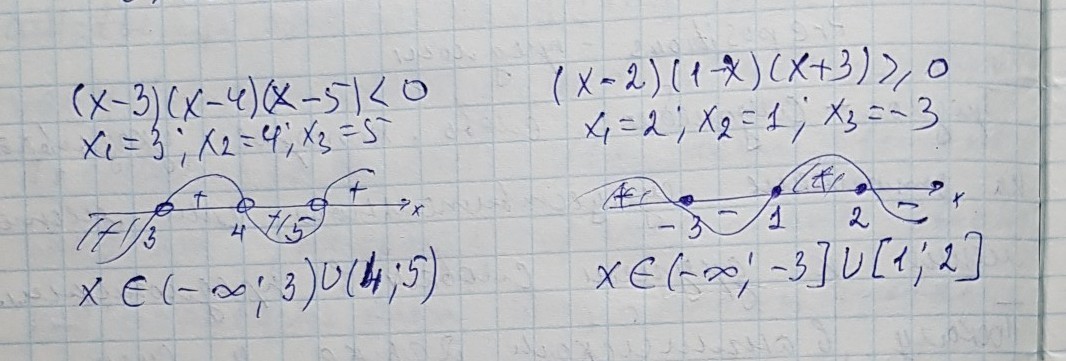 (x-3)(x-4)(x-5)<0
x₁=3; x₂=4; x₃=5
+ +
3 4 5 x
x∈(-∞; 3)∪(4; 5)
(x-2)(1-x)(x+3)≥0
x₁=2; x₂=1; x₃=-3
+ - + -
-3 1 2 x
x∈(-∞; -3]∪[1; 2]